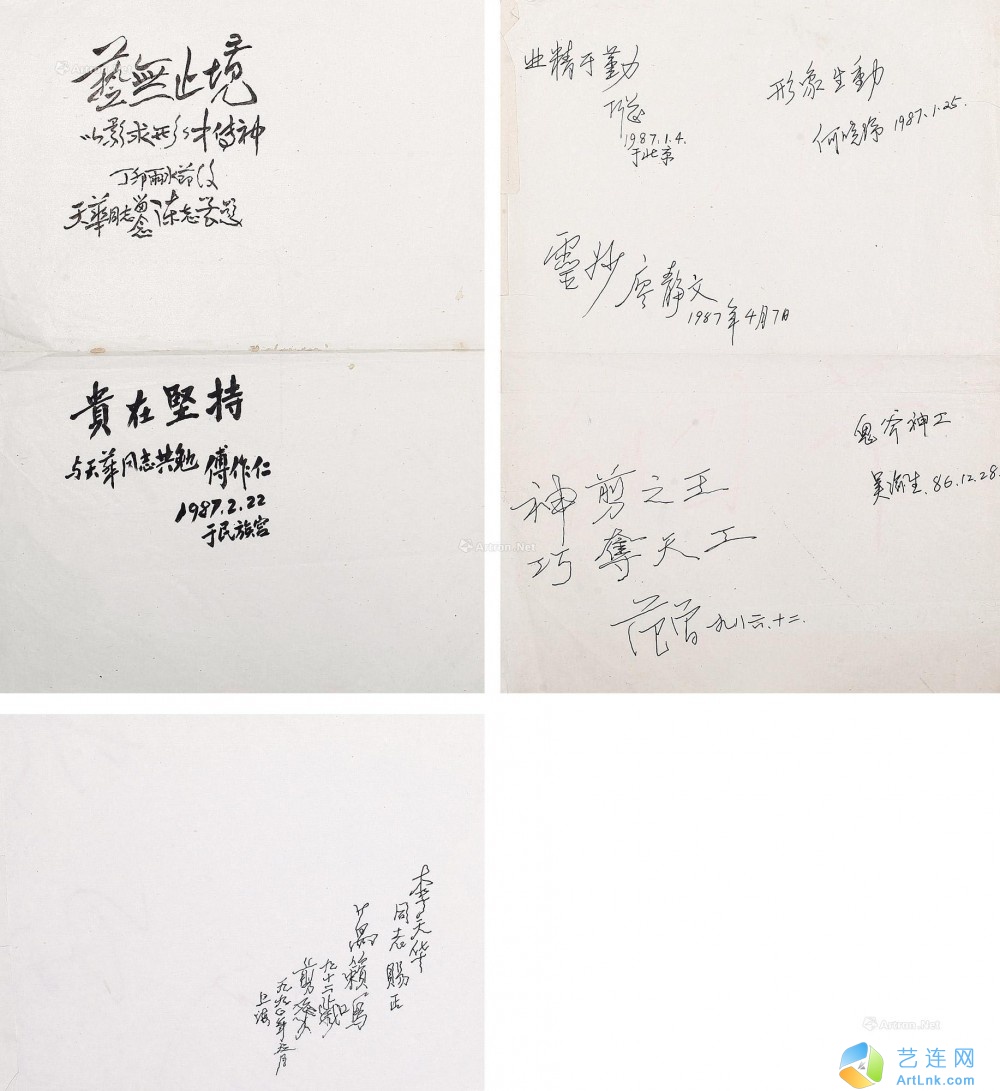 藝無止境
以影求形形中传神
丁卯雨水節後
天華同志留念 陈志农题
貴在堅持
与天華同志共勉 傅作仁
1987.2.22
于民族宫
业精于勤
1987.1.4.
于北京
形象生動
何晓铮 1987.1.25.
靈妙 廖静文
1987年4月7日
鬼斧神工
86.12.28.
神剪之王
巧奪天工
范曾 九八六.十二.
李天华
同志賜正
萬籟鳴
九十二歲
剪影
一九九〇年五月
上海
Artron.Net
Artron.Net
Artron.Net
艺连网
ArtLnk.com